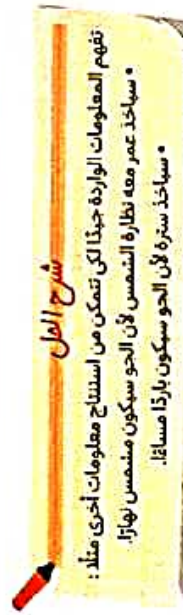 شرح الحل
تفهم المعلومات الواردة جيدًا لكي تتمكن من استنتاج معلومات أخرى مثلًا :
• سيأخذ عمر معه نظارة الشمس لأن الجو سيكون مشمس نهارًا.
• سيأخذ سترة لأن الجو سيكون باردًا مساءًا.